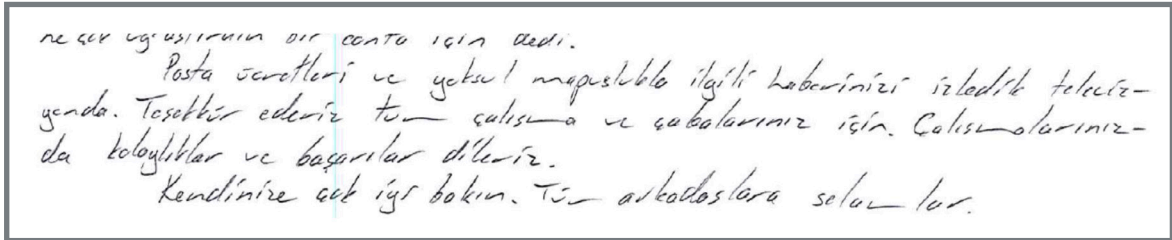 bir çanta için dedi.
Posta ücretleri ve yoksul mapuslukla ilgili haberinizi izledik televiz-
yonda. Teşekkür ederiz tüm çalışma ve çabalarınız için. Çalışmalarınız-
da kolaylıklar ve başarılar dileriz.
Kendinize çok iyi bakın. Tüm arkadaşlara selamlar.